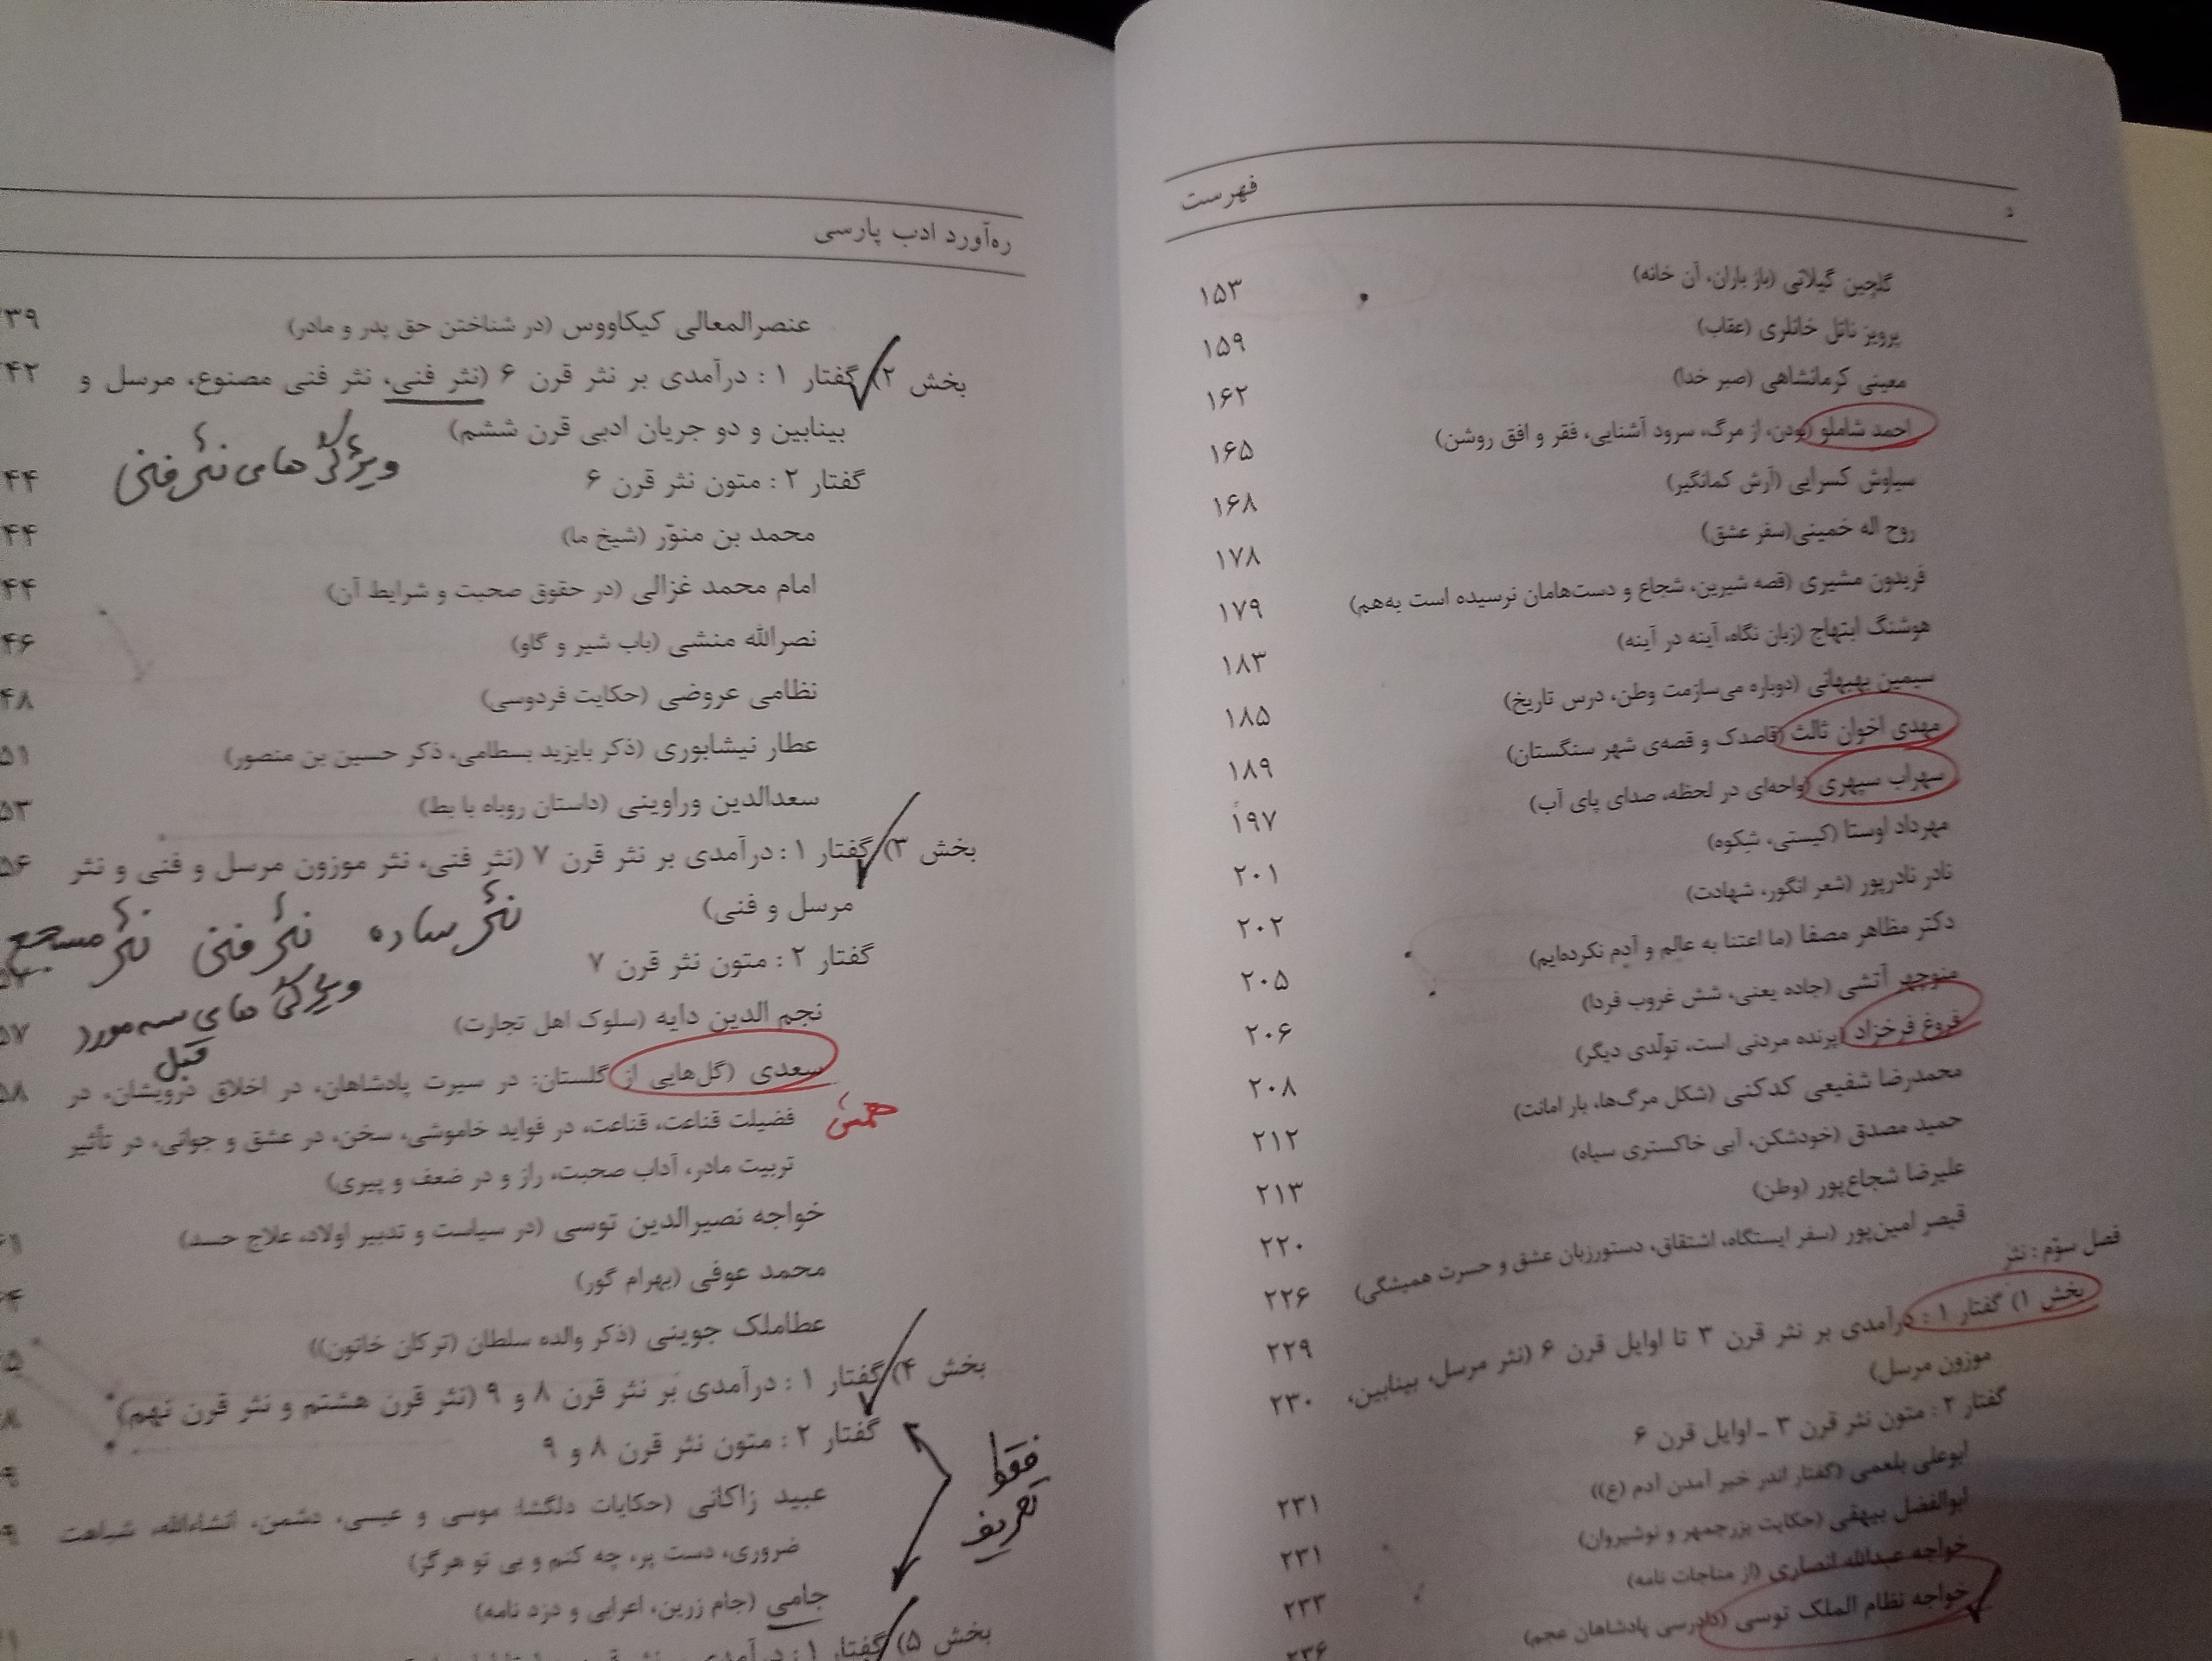 د
فهرست
گلچین گیلانی (باز باران، آن خانه) ۱۵۳
پرویز ناتل خانلری (عقاب) ۱۵۹
معینی کرمانشاهی (صبر خدا) ۱۶۲
احمد شاملو (بودن، از مرگ، سرود آشنایی، فقر و افق روشن) ۱۶۵
سیاوش کسرایی (آرش کمانگیر) ۱۶۸
روح اله خمینی(سفر عشق) ۱۷۸
فریدون مشیری (قصه شیرین، شجاع و دست‌هامان نرسیده است به‌هم) ۱۷۹
هوشنگ ابتهاج (زبان نگاه، آینه در آینه) ۱۸۳
سیمین بهبهانی (دوباره می‌سازمت وطن، درس تاریخ) ۱۸۵
مهدی اخوان ثالث (قاصدک و قصه‌ی شهر سنگستان) ۱۸۹
سهراب سپهری (واحه‌ای در لحظه، صدای پای آب) ۱۹۷
مهرداد اوستا (کیستی، شکوه) ۲۰۱
نادر نادرپور (شعر انگور، شهادت) ۲۰۲
دکتر مظاهر مصفا (ما اعتنا به عالم و آدم نکرده‌ایم) ۲۰۵
منوچهر آتشی (جاده یعنی، شش غروب فردا) ۲۰۶
فروغ فرخزاد (پرنده مردنی است، تولّدی دیگر) ۲۰۸
محمدرضا شفیعی کدکنی (شکل مرگ‌ها، بار امانت) ۲۱۲
حمید مصدق (خودشکن، آبی خاکستری سیاه) ۲۱۳
علیرضا شجاع‌پور (وطن) ۲۲۰
قیصر امین‌پور (سفر ایستگاه، اشتقاق، دستورزبان عشق و حسرت همیشگی) ۲۲۶
فصل سوّم : نثر ۲۲۹
بخش ۱) گفتار ۱ : درآمدی بر نثر قرن ۳ تا اوایل قرن ۶ (نثر مرسل، بینابین، ۲۳۰
موزون مرسل)
گفتار ۲ : متون نثر قرن ۳ ـ اوایل قرن ۶ ۲۳۱
ابوعلی بلعمی (گفتار اندر خبر آمدن آدم (ع)) ۲۳۱
ابوالفضل بیهقی (حکایت بزرجمهر و نوشیروان) ۲۳۳
خواجه عبدالله انصاری (از مناجات نامه) ۲۳۶
خواجه نظام الملک توسی (دادرسی پادشاهان عجم)
ره‌آورد ادب پارسی
عنصرالمعالی کیکاووس (در شناختن حق پدر و مادر) ۳۹
بخش ۲) گفتار ۱ : درآمدی بر نثر قرن ۶ (نثر فنی، نثر فنی مصنوع، مرسل و ۴۲
بینابین و دو جریان ادبی قرن ششم)
ویژگی های نثر فنی
گفتار ۲ : متون نثر قرن ۶ ۴۴
محمد بن منوّر (شیخ ما) ۴۴
امام محمد غزالی (در حقوق صحبت و شرایط آن) ۴۴
نصرالله منشی (باب شیر و گاو) ۴۶
نظامی عروضی (حکایت فردوسی) ۴۸
عطار نیشابوری (ذکر بایزید بسطامی، ذکر حسین بن منصور) ۵۱
سعدالدین وراوینی (داستان روباه با بط) ۵۳
بخش ۳) گفتار ۱ : درآمدی بر نثر قرن ۷ (نثر فنی، نثر موزون مرسل و فنی و نثر ۵۶
مرسل و فنی)
نثر ساده نثر فنی نثر مسجع
گفتار ۲ : متون نثر قرن ۷
ویژگی های سه مورد قبل
نجم الدین دایه (سلوک اهل تجارت) ۵۷
سعدی (گل‌هایی از گلستان: در سیرت پادشاهان، در اخلاق درویشان، در ۵۸
فضیلت قناعت، قناعت، در فواید خاموشی، سخن، در عشق و جوانی، در تأثیر
تربیت مادر، آداب صحبت، راز و در ضعف و پیری)
خواجه نصیرالدین توسی (در سیاست و تدبیر اولاد، علاج حسد)
محمد عوفی (بهرام گور)
عطاملک جوینی (ذکر والده سلطان (ترکان خاتون))
بخش ۴) گفتار ۱ : درآمدی بر نثر قرن ۸ و ۹ (نثر قرن هشتم و نثر قرن نهم)
گفتار ۲ : متون نثر قرن ۸ و ۹
فقط تعریف
عبید زاکانی (حکایات دلگشا: موسی و عیسی، دشمن، انشاءالله، شباهت
ضروری، دست پر، چه کنم و بی تو هرگز)
جامی (جام زرین، اعرابی و دزد نامه)
بخش ۵) گفتار ۱ : درآمدی بر نثر